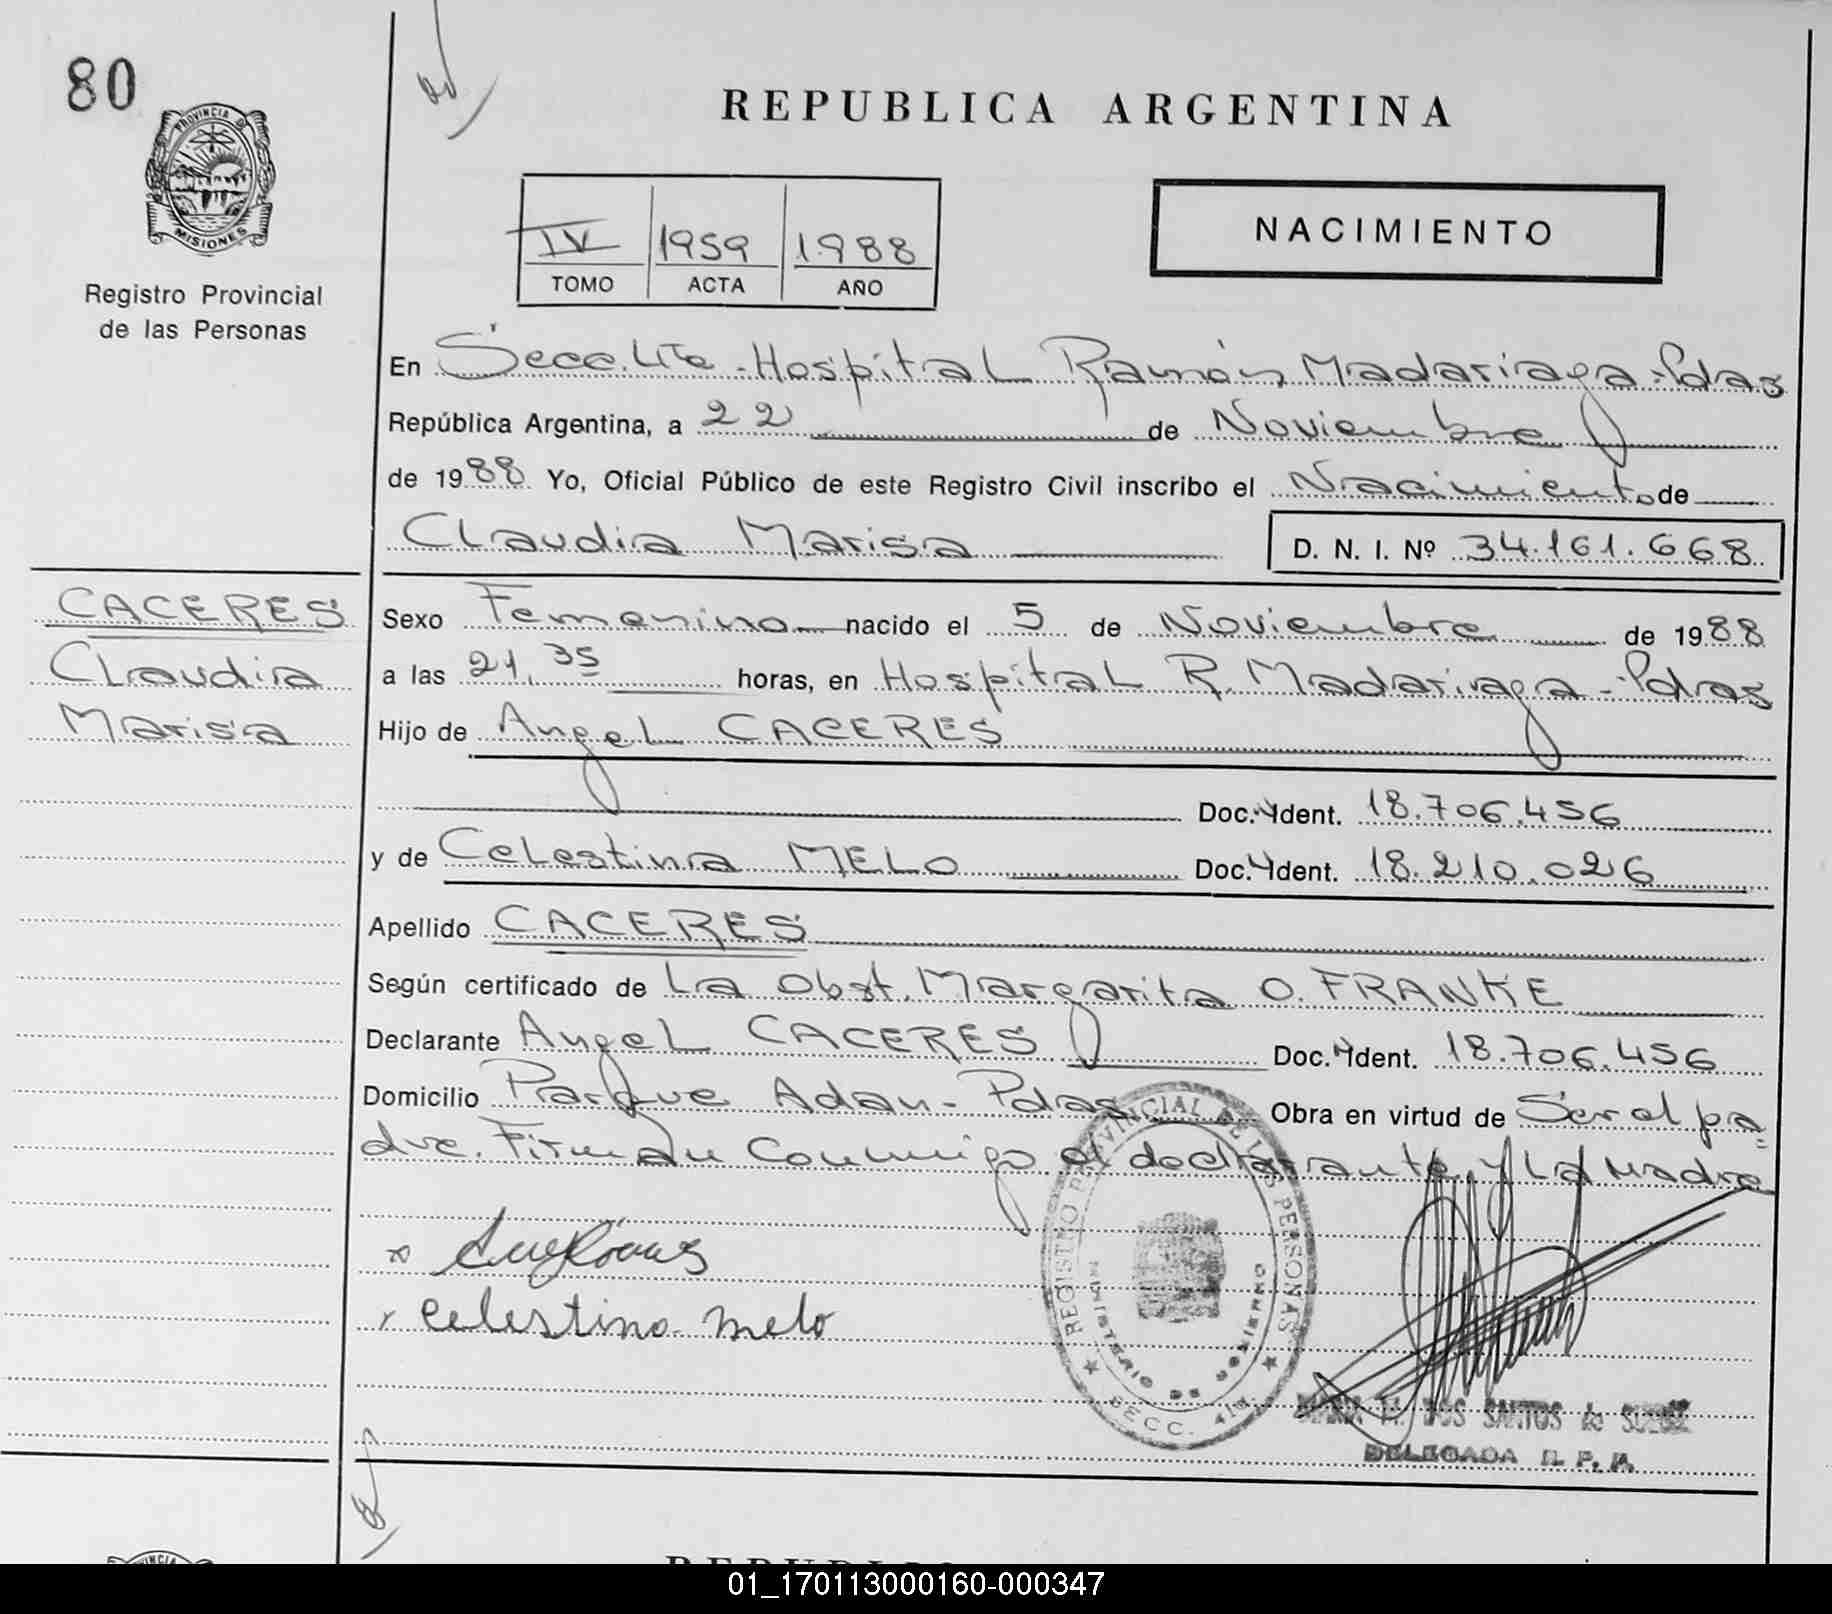 80
PROVINCIA DE
MISIONES
Registro Provincial
de las Personas
REPUBLICA ARGENTINA
IV 1959 1988
TOMO ACTA AÑO
NACIMIENTO
En Secc. 4ta - Hospital Ramón Madariaga - Pdas
República Argentina, a 22 de Noviembre
de 1988 Yo, Oficial Público de este Registro Civil inscribo el Nacimiento de
Claudia Marisa D. N. I. Nº 34.161.668
CACERES
Claudia
Marisa
Sexo Femenino nacido el 5 de Noviembre de 1988
a las 21,35 horas, en Hospital R. Madariaga - Pdas
Hijo de Angel CACERES
Doc. Ident. 18.706.456
y de Celestina MELO Doc. Ident. 18.210.026
Apellido CACERES
Según certificado de La Obst. Margarita O. FRANKE
Declarante Angel CACERES Doc. Ident. 18.706.456
Domicilio Parque Adan - Pdas Obra en virtud de Ser el pa-
dre. Firman Conmigo el declarante y La Madre
celestina melo
REGISTRO PROVINCIAL DE LAS PERSONAS
MINISTERIO DE GOBIERNO
SECC. 4ta.
M. DOS SANTOS de
DELEGADA R. P. P.
01_170113000160-000347